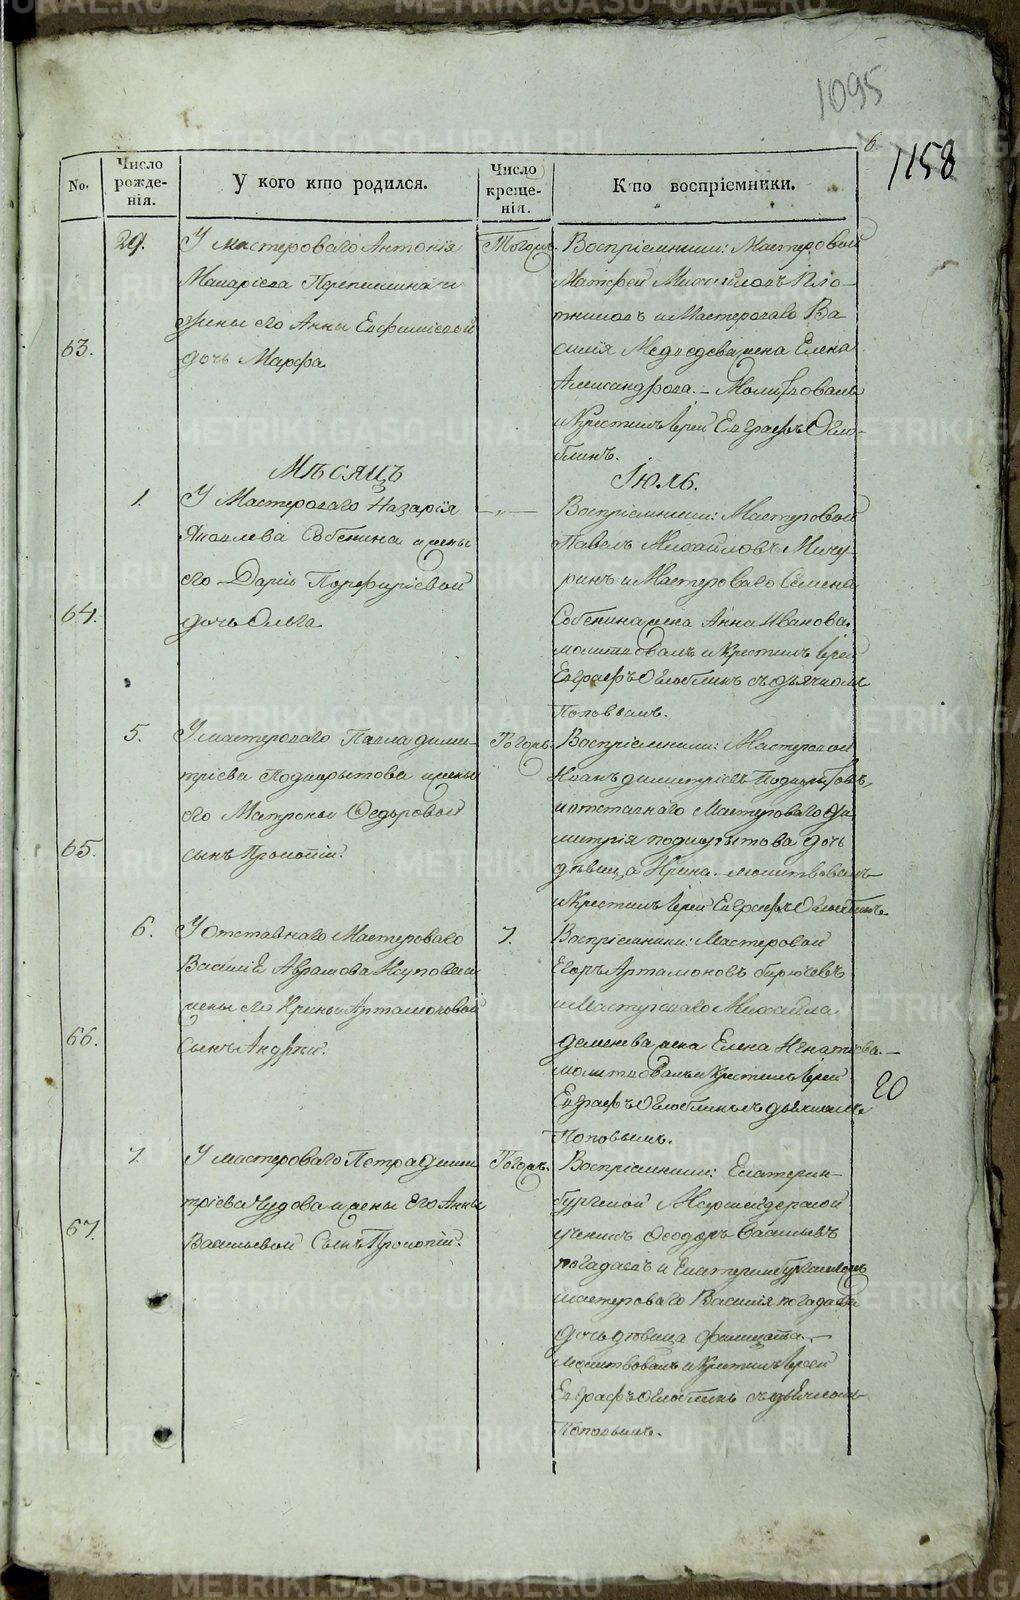 1095
6.
1158
No.
Число рожденія.
У кого кто родился.
Число крещенія.
Кто воспріемники.
63.
29.
У мастероваго Антонія
Макаріева Перепелкина и
жены его Анны Евфиміевой
дочь Марѳа.
Тогожъ.
Воспріемники: Мастеровой
Матѳей Михайловъ Пло-
тниковъ и Мастероваго Ва-
силія Медведева жена Елена
Александрова. – Молитвовалъ
и Крестилъ Іерей Евграфъ Огло-
блинъ.
Мѣсяцъ
Іюль.
64.
1.
У Мастероваго Назарія
Яковлева Собенина и жены
его Дарьи Порфиріевой
дочь Ольга.
Воспріемники: Мастеровой
Павелъ Михайловъ Мичу-
ринъ и Мастероваго Семена
Собенина жена Анна Иванова.
молитвовалъ и Крестилъ Іерей
Евграфъ Оглоблинъ съ дьячкомъ
Поповымъ.
65.
5.
У мастероваго Павла Дими-
тріева Подкорытова и жены
его Матроны Ѳедоровой
сынъ Прокопій.
Тогожъ.
Воспріемники: Мастеровой
Иванъ Димитріевъ Подкорытовъ,
и отставнаго Мастероваго Ди-
митрія Подкорытова дочь
дѣвица Ирина. – молитвовалъ
и Крестилъ Іерей Евграфъ Оглоблинъ
66.
6.
У Отставнаго Мастероваго
Василія Аврамова и
жены его Ирины Артамоновой
Сынъ Андрей.
7.
Воспріемники: Мастеровой
Егоръ Артамоновъ Бирючевъ
и Мастероваго Михайла
Деменева жена Елена Игнатіева. –
молитвовалъ и Крестилъ Іерей
Евграфъ Оглоблинъ съ дьячкомъ
Поповымъ.
20
67.
7.
У мастероваго Петра Дими-
тріева Чудова и жены Его Анны
Васильевой Сынъ Прокопій.
Тогожъ.
Воспріемники: Екатерин-
бургской Маркшейдерской
ученикъ Ѳеодоръ Васильевъ
Погадаевъ и Екатеринбургскаго
мастероваго Василія Погадаева
дочь дѣвица Филицата. –
Молитвовалъ и Крестилъ Іерей
Евграфъ Оглоблинъ съ дьячкомъ
Поповымъ.
METRIKI.GASO-URAL.RU